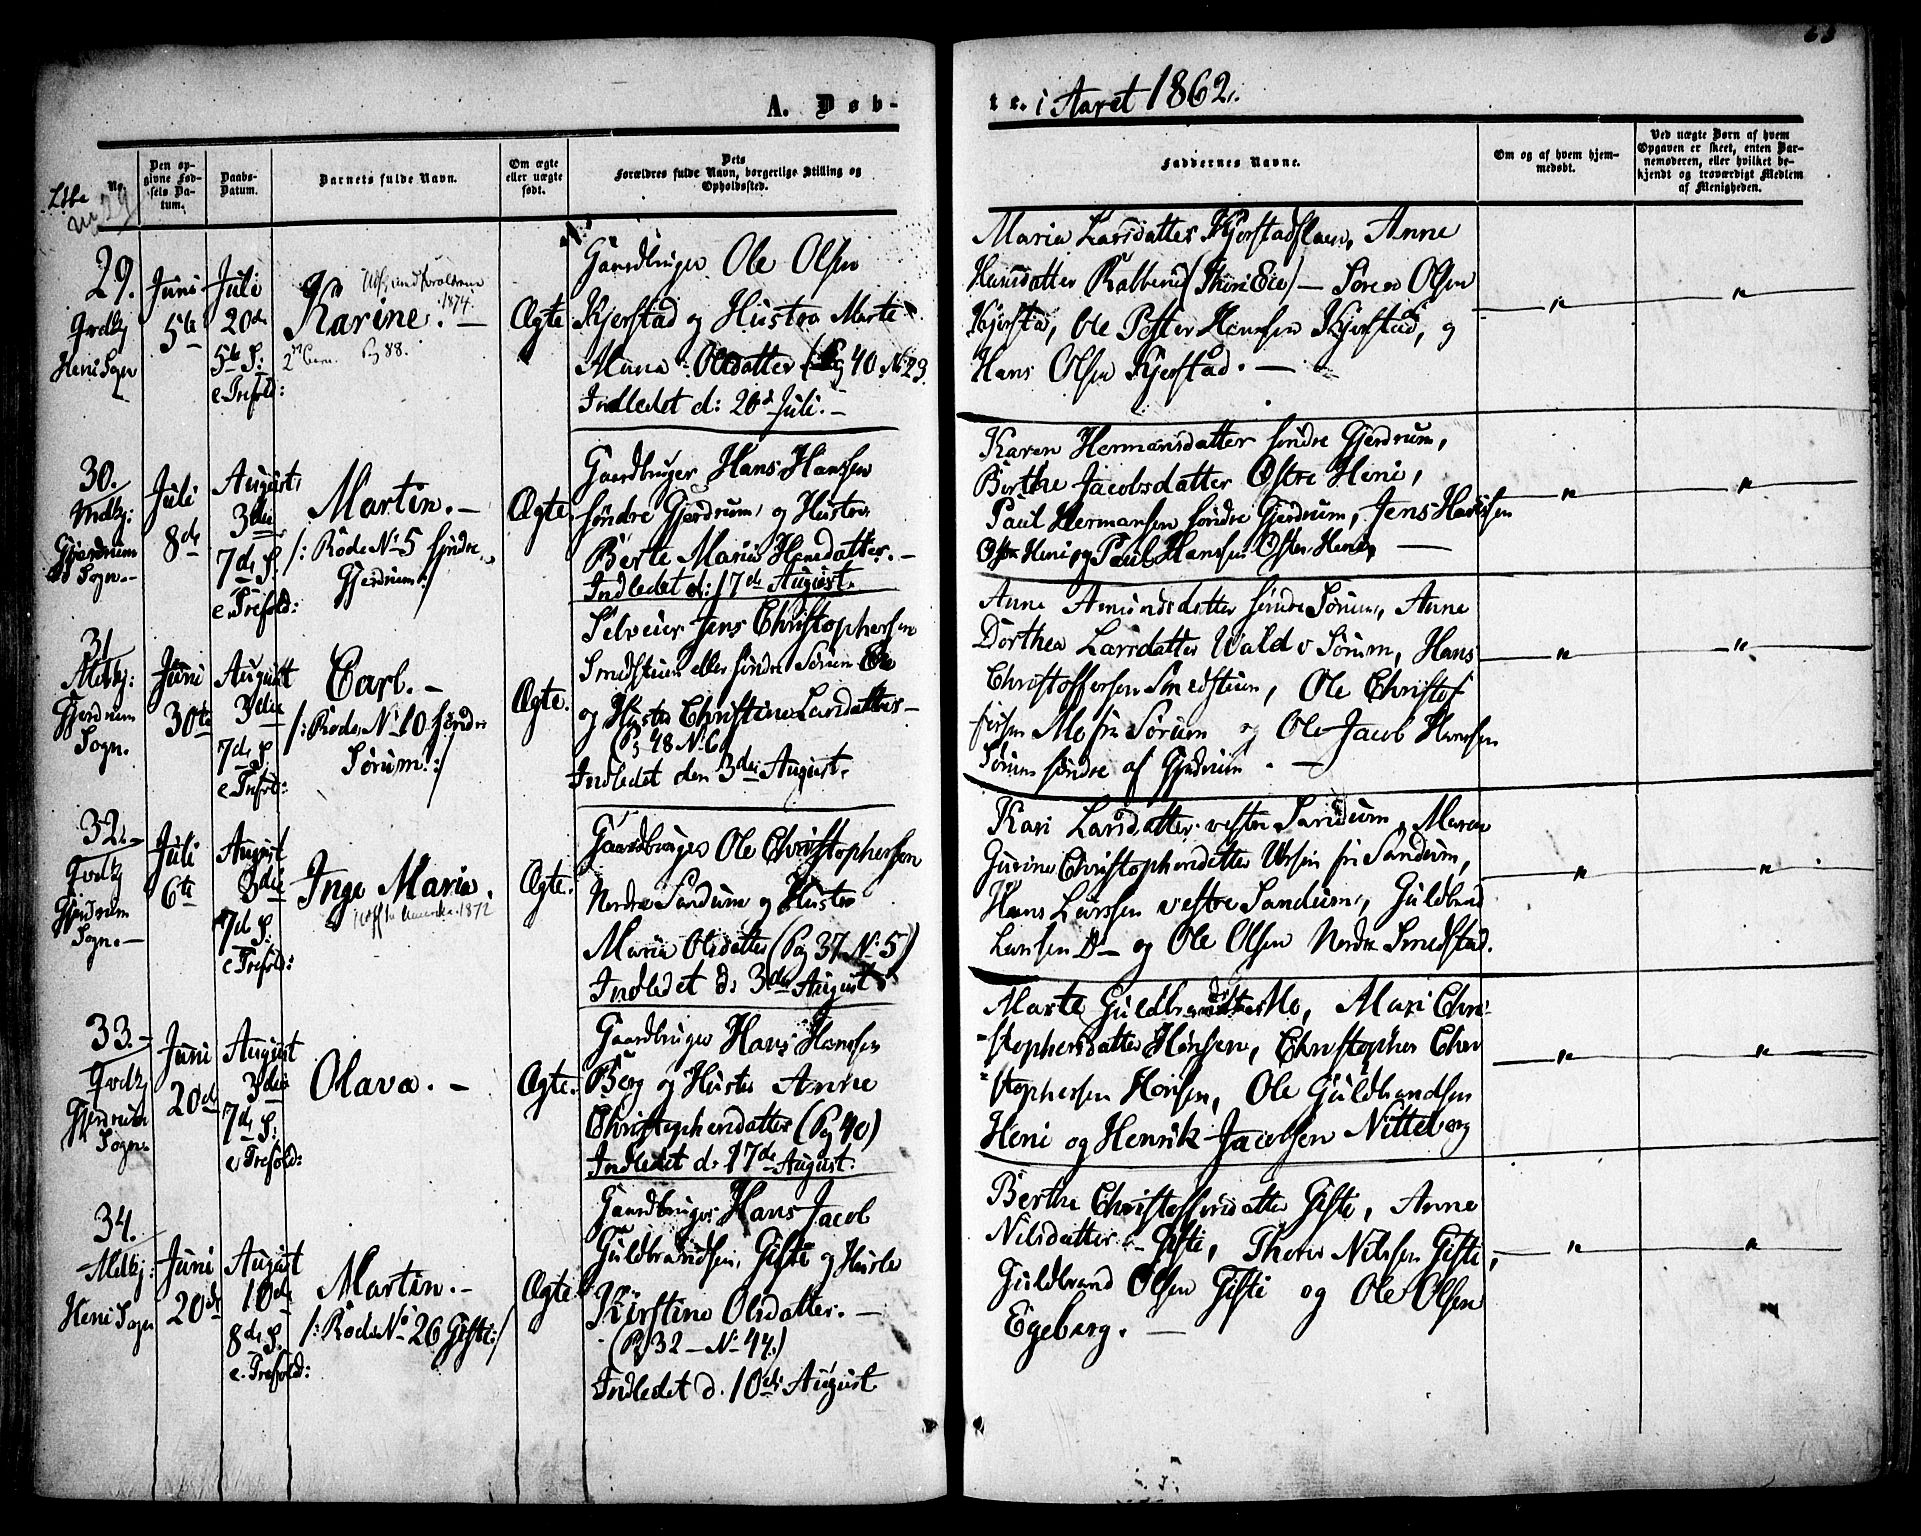 A. Døb-
te. i Aaret 1862.
Løbe No.
Den op-
givne Fød-
sels Da-
tum.
Daabs-
Datum.
Barnets fulde Navn.
Om ægte
eller uægte
født.
Dets
Forældres fulde Navn, borgerlige Stilling og
Opholdssted.
Faddernes Navne.
Om og af hvem hjem-
medøbt.
Ved uægte Børn af hvem
Opgaven er skeet, enten Bar-
nemoderen, eller hvilket be-
kjendt og troværdigt Medlem
af Menigheden.
29.
Heni Sogn
Juni
5te
Juli
20de
5te S:
e Trefold:
Karine. —
1874.
Pg 88.
Ægte
Gaardbruger Ole Olsen
Kjerstad og Hustro Marte
Olsdatter (Pg 40 No 23.
Indledet d: 20de Juli. —
Maria Larsdatter Kjerstadflaen, Anne
Hansdatter — Olsen
Kjerstad, Ole Petter Hansen Kjerstad, og
Hans Olsen Kjerstad. —
30.
Gjerdrum
Sogn. —
Juli
8de
August
3die
7de S.
e. Trefold:
Martin. —
/: Rode No 5 søndre
Gjerdrum :/
Ægte
Gaardbruger Hans Hansen
søndre Gjerdrum, og Hustro
Berte Maria Hansdatter. —
Indledet d: 17de August.
Karen Hermansdatter søndre Gjerdrum,
Berthe Jacobsdatter Østre Heni,
Paul Hermansen søndre Gjerdrum, Jens Hansen
Østre Heni og Paul Hanssen Østre Heni, —
31.
Gjerdrum
Sogn.
Juni
30te
August
3die
7de S.
e Trefol:
Carl. —
/: Rode No 10 søndre
Sørum :/
Ægte.
Selveier Jens Christophersen
Smedstuen eller søndre Sørum
og Hustro Christine Larsdatter —
(Pg 48 No 6
Indledet den 3die August.
Anne Amundsdatter søndre Sørum, Anne
Dorthea Larsdatter Wald v Sørum, Hans
Christoffersen Smedstuen, Ole Christof
fersen Mo fra Sørum og Ole Jacob Hansen
Sørum søndre af Gjerdrum. —
32. —
Gjerdrum
Sogn. —
Juli
6te
August
3die
7de S.
e Trefold:
Inge Maria.
til Amerika 1872
Ægte.
Gaardbruger Ole Christophersen
Nordre Sandum og Hustro
Maria Olsdatter (Pag 37 No 5)
Indledet d: 3die August
Kari Larsdatter vestre Sandum, Maren
Gurine Christophersdatter fra Sandum,
Hans Larssen vestre Sandum, Guldbrand
Larssen Do — og Ole Olsen Nordre Smedstad.
33. —
Gjerdrum
Sogn.
Juni
20de
August
3die
7de S:
e Trefold:
Olava. —
Ægte.
Gaardbruger Hans Hansen
Berg og Hustro Anne
Christophersdatter (Pg 40)
Indledet d: 17de August:
Marte Guldbrandsdatter Mo, Mari Chri-
stophersdatter Hønsen, Christopher Chri
stophersen Hønsen, Ole Guldbrandsen
Heni og Henrik Jacobsen Nitteberg
34.
Heni Sogn
Juni
20de
August
10de
8de S.
e. Trefold:
Martin. —
/: Rode No 26 Gisti :/
Ægte
Gaardbruger Hans Jacob
Guldbrandsen, Gisti og Hustro
Kirstine Olsdatter. —
(Pg 32 — No 44.)
Indledet d. 10de August
Berthe Christoffersdatter Gisti, Anne
Nilsdatter Gisti, Thorer Nilssen Gisti,
Guldbrand Olsen Gisti og Ole Olsen
Egeberg. —